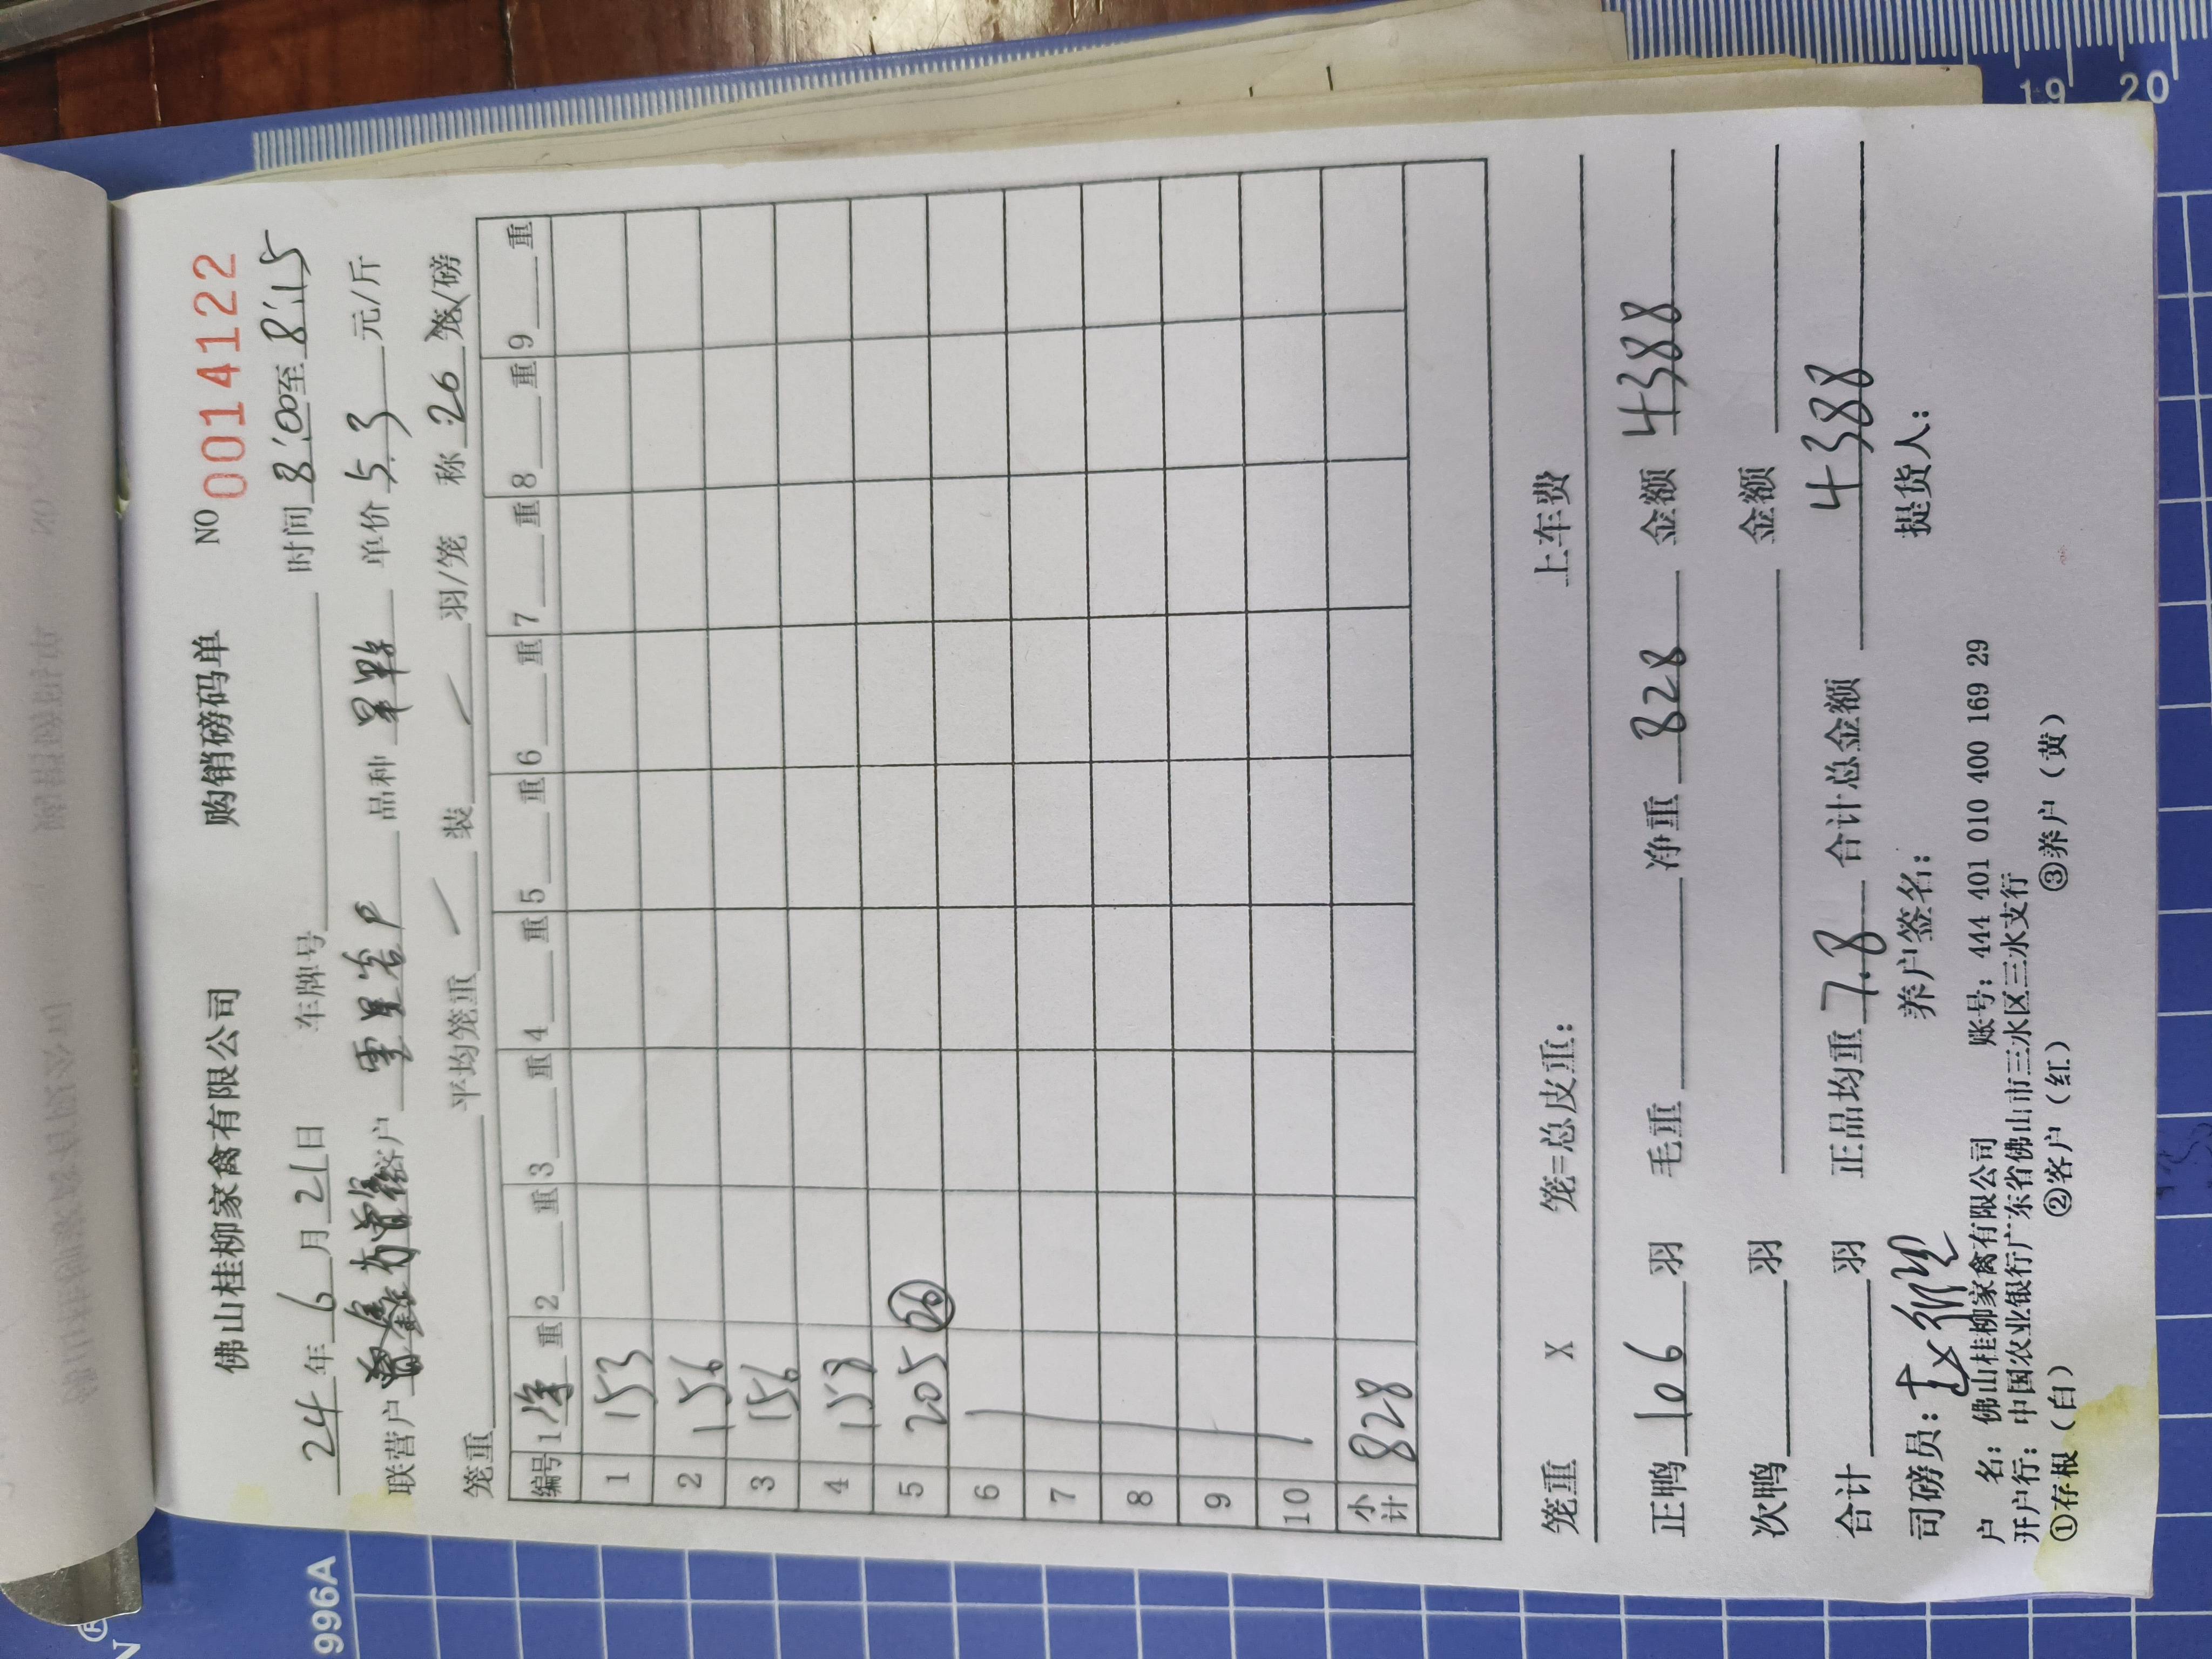 佛山桂柳家禽有限公司 购销磅码单 NO 0014122
24年6月21日 车牌号 时间8:00至8:15
联营户 客户 品种 单价5.3元/斤
笼重 平均笼重 装 羽/笼 称20笼/磅
编号 1净重 2 重 3 重 4 重 5 重 6 重 7 重 8 重 9 重
1 153
2 156
3 156
4 158
5 205 26
6
7
8
9
10
小计 828
笼重 X 笼=总皮重: 上车费
正鸭106羽 毛重 净重828 金额4388
次鸭 羽 金额
合计 羽 正品均重7.8 合计总金额 4388
司磅员: 养户签名: 提货人:
户 名:佛山桂柳家禽有限公司 账号:444 401 010 400 169 29
开户行:中国农业银行广东省佛山市三水区三水支行
①存根(白) ②客户(红) ③养户(黄)
996A
19 20